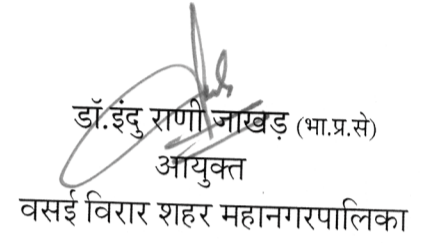 डॉ.इंदु राणी जाखड़ (भा.प्र.से)
आयुक्त
वसई विरार शहर महानगरपालिका